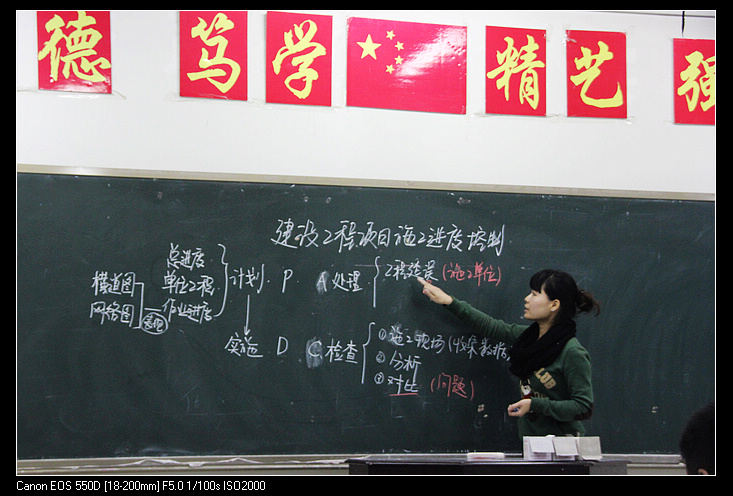 德 笃 学 精 艺 强
建设工程项目施工进度控制
总进度
单位工程
作业进度
横道图
网络图
表现
计划 P
实施 D
A 处理
工程延误 (施工单位)
C 检查
① 施工现场 (收集数据
② 分析
③ 对比 (问题)
Canon EOS 550D [18-200mm] F5.0 1/100s ISO2000